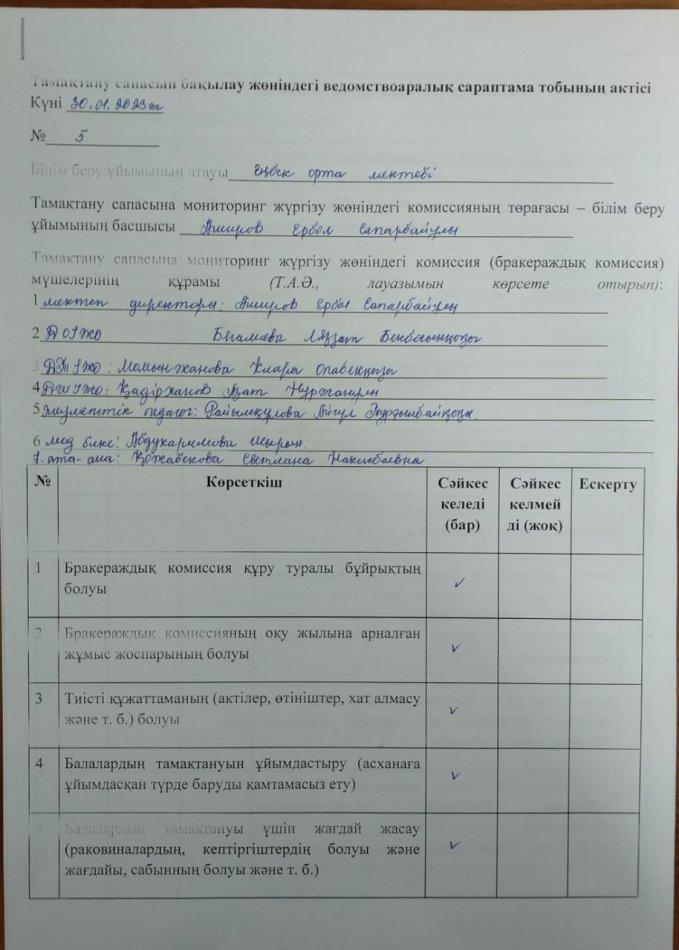 Тамақтану сапасын бақылау жөніндегі ведомствоаралық сараптама тобының актісі
Күні 30.01.2023ж
№ 5
Білім беру ұйымының атауы Еңбек орта мектебі
Тамақтану сапасына мониторинг жүргізу жөніндегі комиссияның төрағасы – білім беру
ұйымының басшысы Аширов Ербол Сапарбайұлы
Тамақтану сапасына мониторинг жүргізу жөніндегі комиссия (бракераждық комиссия)
мүшелерінің құрамы (Т.А.Ә., лауазымын көрсете отырып):
1 мектеп директоры: Аширов Ербол Сапарбайұлы
2 ДОІЖО Ләззат
3 ДТІЖО: Момынжанова Клара Опабекқызы
4 ДШІЖО: Қадіржанов Нуржанұлы
5 Әлуметтік педагог: Райымқулова Айгул Тұрғынбайқызы.
6 мед бике: Абдукаримова
7. ата-ана: Қожабекова Светлана
№ Көрсеткіш Сәйкес келеді (бар) Сәйкес келмей ді (жоқ) Ескерту
1 Бракераждық комиссия құру туралы бұйрықтың
болуы ✓
2 Бракераждық комиссияның оқу жылына арналған
жұмыс жоспарының болуы ✓
3 Тиісті құжаттаманың (актілер, өтініштер, хат алмасу
және т. б.) болуы ✓
4 Балалардың тамақтануын ұйымдастыру (асханаға
ұйымдасқан түрде баруды қамтамасыз ету) ✓
5 Балалардың тамақтануы үшін жағдай жасау
(раковиналардың, кептіргіштердің болуы және
жағдайы, сабынның болуы және т. б.) ✓